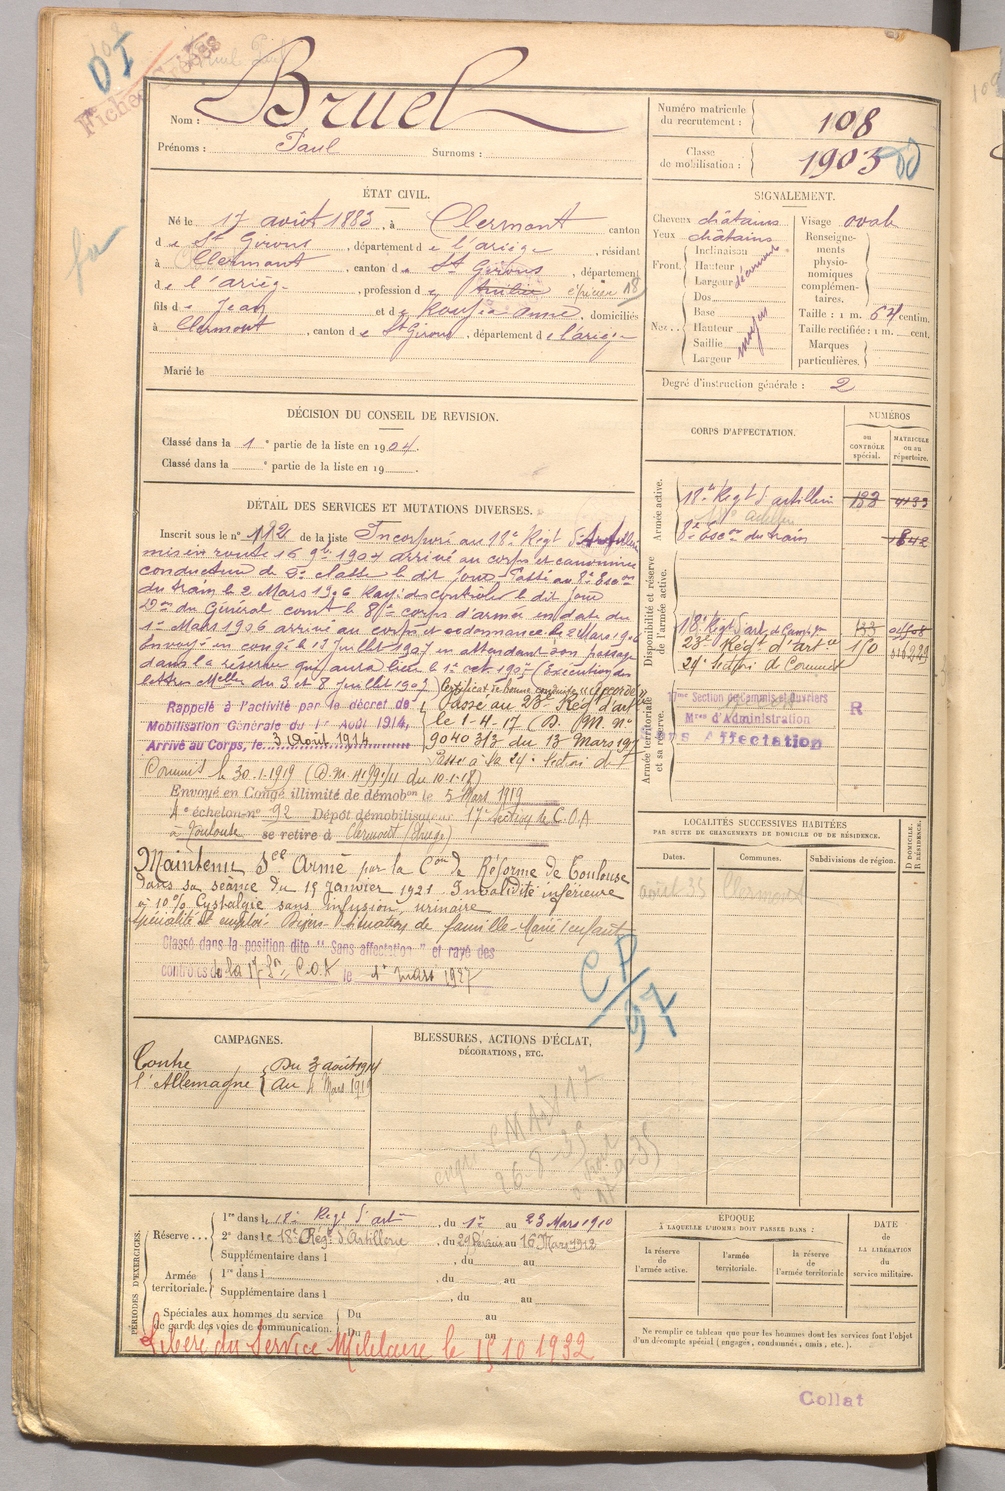 Fiches Croisées
DI
Nom : Bruel
Prénoms : Paul Surnoms :
Numéro matricule du recrutement : 108
Classe de mobilisation : 1903
ÉTAT CIVIL.
Né le 17 août 1883, à Clermont canton
de St Girons, département de l'ariège, résidant
à Clermont, canton de St Girons, département
de l'ariège, profession de épicier 18
fils de Jean et de Anne, domiciliés
à Clermont, canton de St Girons, département de l'ariège
Marié le
SIGNALEMENT.
Cheveux châtains
Yeux châtains
Front. Inclinaison
Hauteur
Largeur
Nez... Dos
Base
Hauteur moyen
Saillie
Largeur
Visage ovale
Renseignements physionomiques complémentaires.
Taille : 1 m. 64 centim.
Taille rectifiée : 1 m. cent.
Marques particulières.
Degré d'instruction générale : 2
DÉCISION DU CONSEIL DE REVISION.
Classé dans la 1e partie de la liste en 1904.
Classé dans la e partie de la liste en 19 .
DÉTAIL DES SERVICES ET MUTATIONS DIVERSES.
Inscrit sous le n° 112 de la liste Incorporé au 18e Régt d'Artillerie
mis en route 16 9bre 1904 arrivé au corps et canonnier
conducteur de 2e classe le dit jour. Passé au 8e Escon
du train le 2 Mars 1906 Rayé des contrôles le dit jour
Don du Général comt le 8e corps d'armée en date du
1er Mars 1906 arrivé au corps et ordonnance le 2 Mars 1906
Envoyé en congé le 12 Juillet 1907 en attendant son passage
dans la réserve qui aura lieu le 1er oct 1907 (Exécution des
lettres Melles du 3 et 8 Juillet 1907) Certificat de bonne conduite "accordé"
Rappelé à l'activité par le décret de
Mobilisation Générale du 1er Août 1914,
Arrivé au Corps, le 3 Août 1914
Passé au 23e Rég d'arte
le 1-4-17 (D. M. n°
9040 3/3 du 13 Mars 1917
Passé à la 24e Section de
Commis le 30.1.1919
Envoyé en Congé illimité de démobon le 5 Mars 1919
4e échelon n° 92 Dépôt démobilisateur 17e section de C.O.A
à Toulouse se retire à Clermont (Ariège)
Maintenu Sce Armé par la Con de Réforme de Toulouse
dans sa séance du 15 Janvier 1921. Invalidité inférieure
à 10% Cystalgie sans infusion urinaire
Spécialité et emploi. Situation de famille. Marié 1 enfant
Classé dans la position dite "Sans affectation" et rayé des
contrôles de la 17e Son C.O.A le 1er mars 1927
CP/97
CORPS D'AFFECTATION.
NUMÉROS
au CONTRÔLE spécial.
MATRICULE ou au répertoire.
Armée active.
18e Régt d'artillerie 133 4133
8e Escon du train 1842
Disponibilité et réserve de l'armée active.
18e Régt d'art. de Campgne 133
23e Régt d'artie 150
24e Section de Commis
Armée territoriale et sa réserve.
17me Section de Commis et Ouvriers
Mres d'Administration R
Sans Affectation
LOCALITÉS SUCCESSIVES HABITÉES
PAR SUITE DE CHANGEMENTS DE DOMICILE OU DE RÉSIDENCE.
Dates. Communes. Subdivisions de région. D DOMICILE. R RÉSIDENCE.
août 35 Clermont
CAMPAGNES.
Contre l'Allemagne { Du 3 août 1914
au 4 Mars 1919
BLESSURES, ACTIONS D'ÉCLAT,
DÉCORATIONS, ETC.
26-8-35
PÉRIODES D'EXERCICES.
Réserve... 1re dans le 18e Régt d'art, du 1er au 23 Mars 1910
2e dans le 18e Régt d'Artillerie, du 29 Février au 16 Mars 1912
Supplémentaire dans l , du au
Armée territoriale. 1re dans l , du au
Supplémentaire dans l , du au
Spéciales aux hommes du service de garde des voies de communication. Du au
Du au
Libéré du Service Militaire le 15 10 1932
ÉPOQUE
À LAQUELLE L'HOMME DOIT PASSER DANS :
la réserve de l'armée active.
l'armée territoriale.
la réserve de l'armée territoriale
DATE de LA LIBÉRATION du service militaire.
Ne remplir ce tableau que pour les hommes dont les services font l'objet
d'un décompte spécial (engagés, condamnés, omis, etc.).
Collat